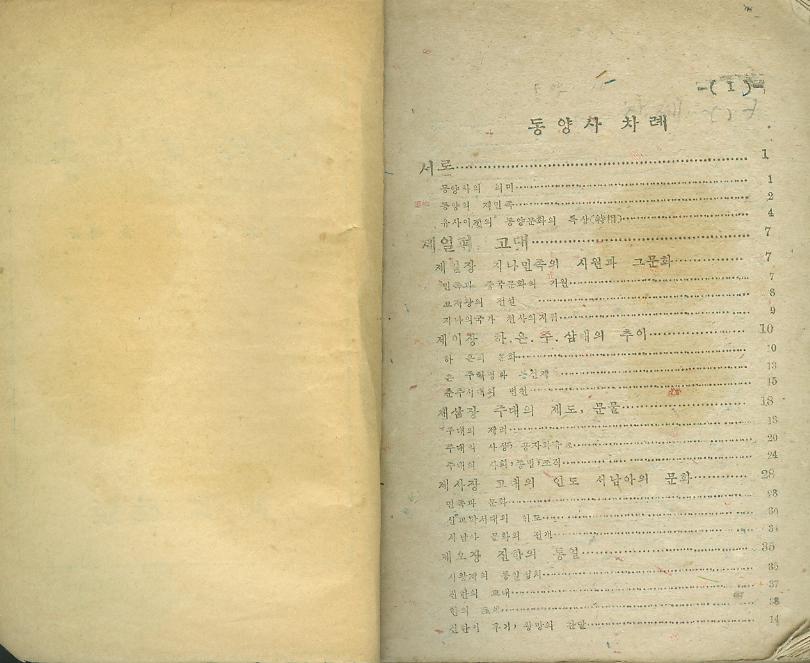 -(I)-
동양사 차례
서론 1
동양사의 의미 1
동양의 제민족 2
유사이전의 동양문화의 특상(特相) 4
제일편 고대 7
제일장 지나민족의 시원과 그문화 7
민족과 중주문화의 기원 7
전설 8
지나의국가 9
제이장 하.은.주.삼대의 추이 10
하 은의 문화 10
은 주혁명과 봉건제 13
춘추시대의 변천 15
제삼장 주대의 제도, 문물 18
주대의 18
주대의 20
주대의 사회 조직 24
제사장 고대의 인도 서남아의 문화 28
민족과 문화 28
인도 30
서남아 문화의 전개 34
제오장 진한의 통일 35
통일정치 35
진한의 교대 37
한의 38